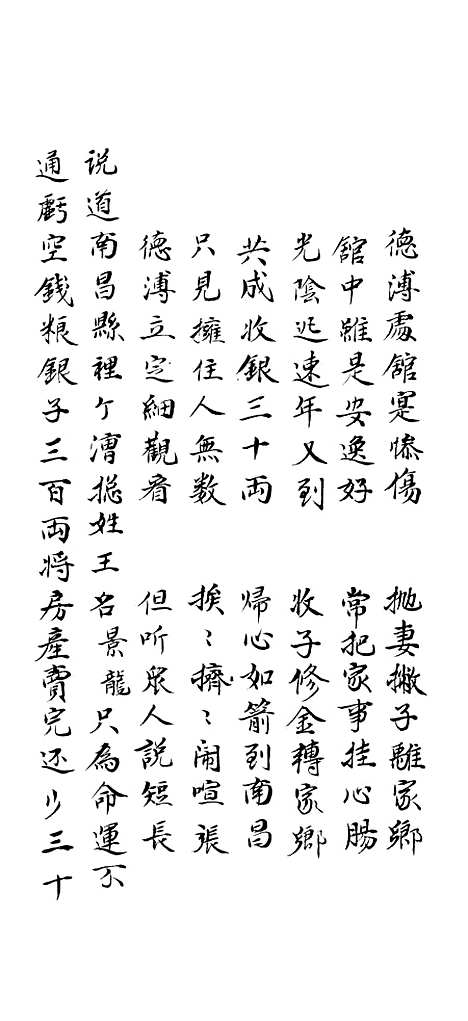 德溥處舘寔慘傷　抛妻撇子離家鄉
舘中雖是安逸好　常把家事挂心腸
光陰迅速年又到　收了修金轉家鄉
共成收銀三十両　帰心如箭到南昌
只見擁住人無数　挨〻擠〻闹喧張
德溥立定細觀看　但听眾人説短長
说道南昌縣裡个漕総姓王名景龍只為命運不
通虧空錢粮銀子三百両将房產賣完还少三十